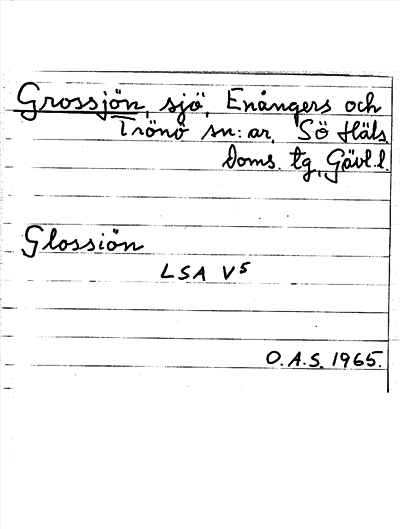 Grossjön, sjö, Enångers och
Trönö sn:ar, Sö Häls.
Doms. tg, Gävl.l.
Glossiön
LSA V5
O.A.S. 1965.